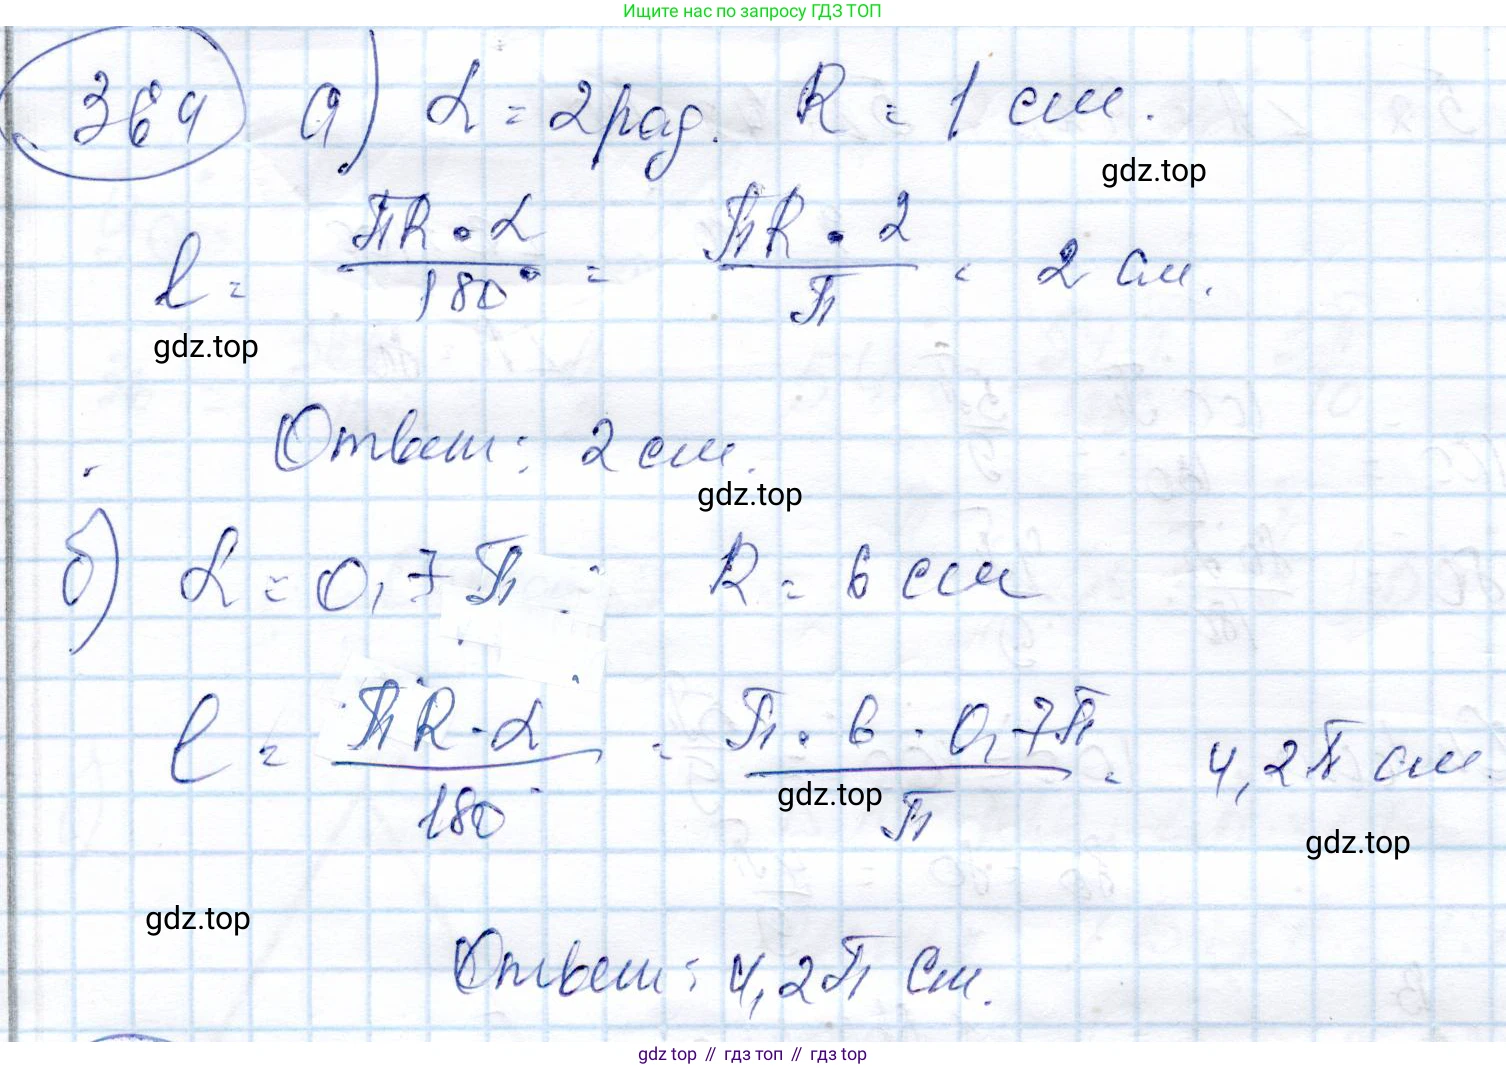 Ищите нас по запросу ГДЗ ТОП
364 а) α = 2 рад. R = 1 см.
gdz.top
l = πR · α / 180° = πR · 2 / π = 2 см.
gdz.top
Ответ: 2 см.
gdz.top
б) α = 0,7π R = 6 см
l = πR · α / 180° = π · 6 · 0,7π / π = 4,2π см.
gdz.top
gdz.top
gdz.top
Ответ: 4,2π см.
gdz top // гдз топ // гдз top